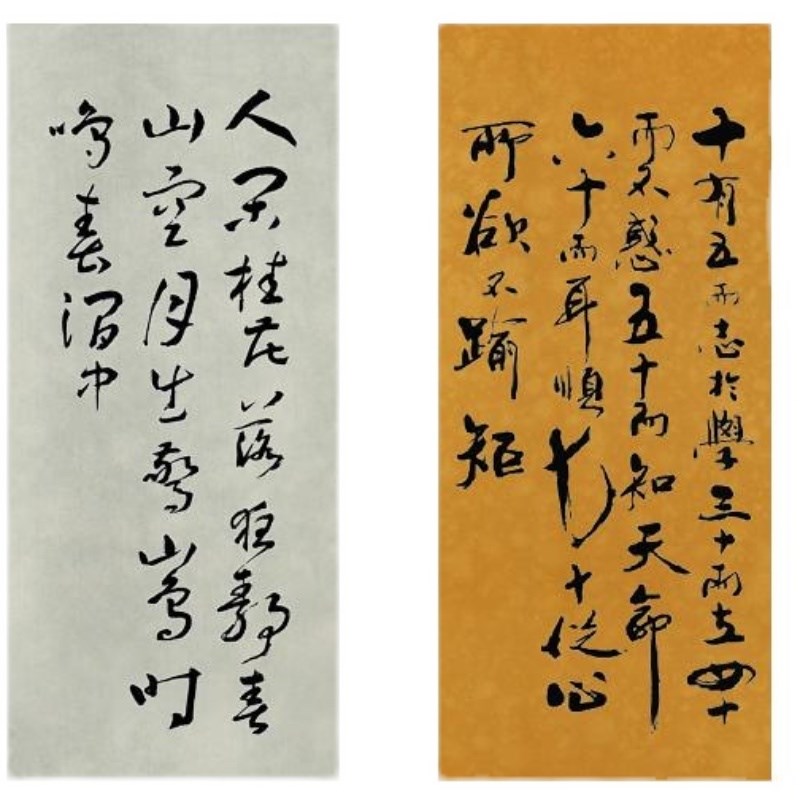 十有五而志於學三十而立四十
而不惑五十而知天命
六十而耳順七十從心
所欲不踰矩
人閑桂花落夜靜春
山空月出驚山鳥时
鳴春澗中